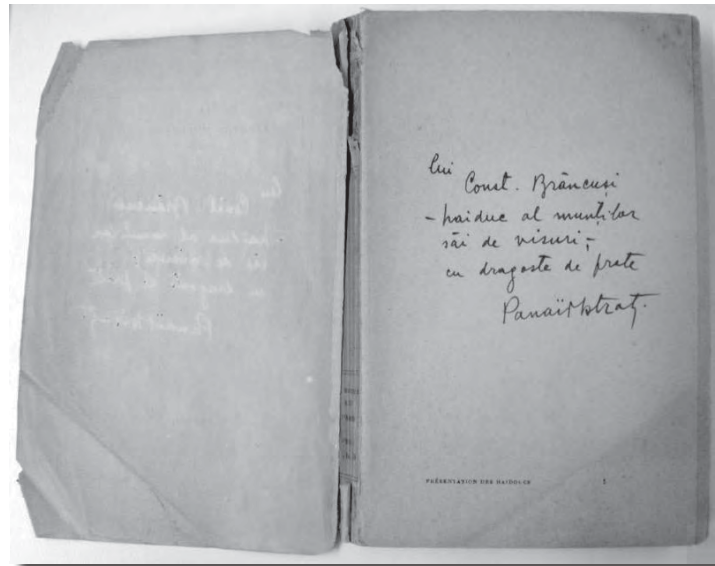 lui
Const. Brâncuși
– haiduc al munților
săi de visuri, –
cu dragoste de frate
Panaït Istrati.
PRÉSENTATION DES HAÏDOUCS 1